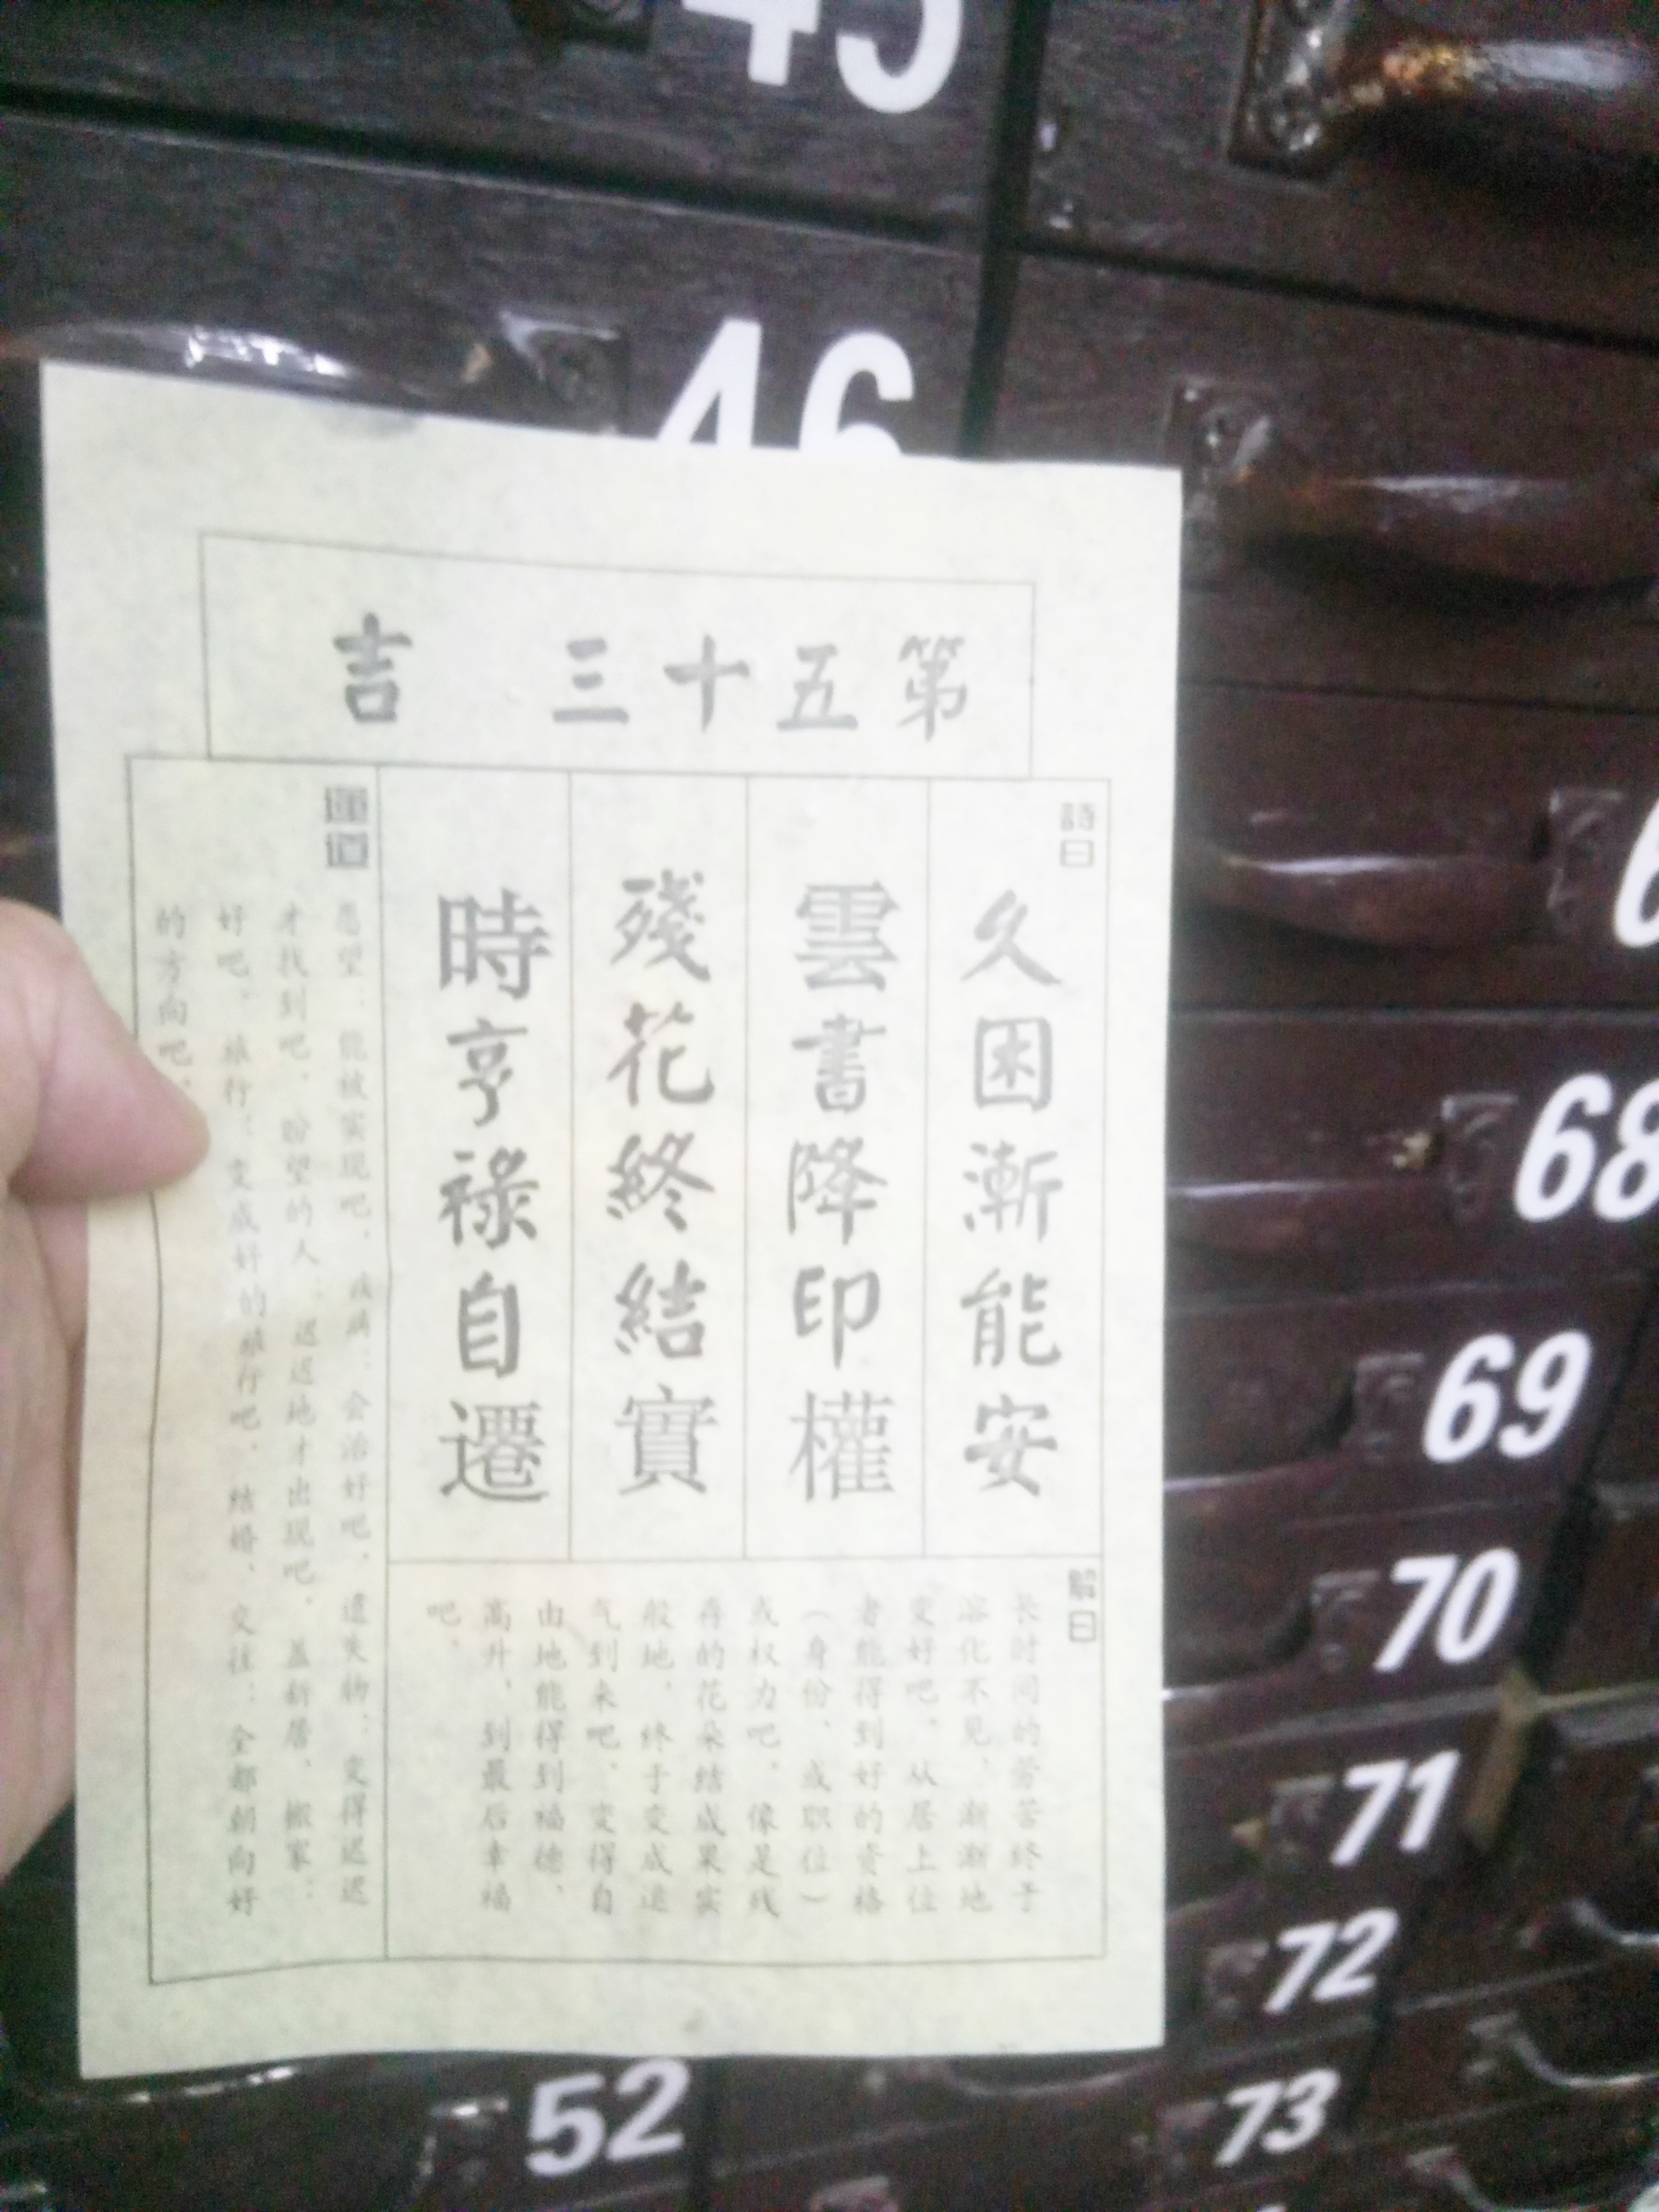 第五十三 吉
詩曰
久困漸能安
雲書降印權
殘花終結實
時亨祿自遷
解曰
长时间的劳苦终于
溶化不见、渐渐地
变好吧。从居上位
者能得到好的资格
（身份、或职位）
或权力吧。像是残
存的花朵结成果实
般地，终于变成运
气到来吧。变得自
由地能得到福德、
高升，到最后幸福
吧。
運道
愿望：能被实现吧。疾病：会治好吧。遗失物：变得迟迟
才找到吧。盼望的人：迟迟地才出现吧。盖新居、搬家：
好吧。旅行：变成好的旅行吧。结婚、交往：全都朝向好
的方向吧。
45
46
68
69
70
71
72
73
52